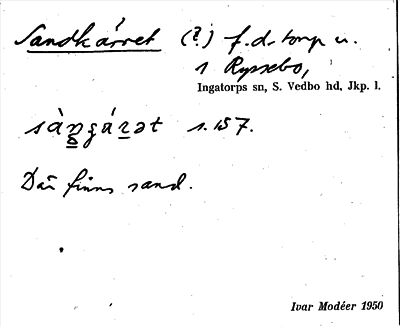 Sandkärret (?) f.d. torp u.
1 Ryssebo,
Ingatorps sn, S. Vedbo hd, Jkp. l.
s. 157.
Där finns sand.
Ivar Modéer 1950